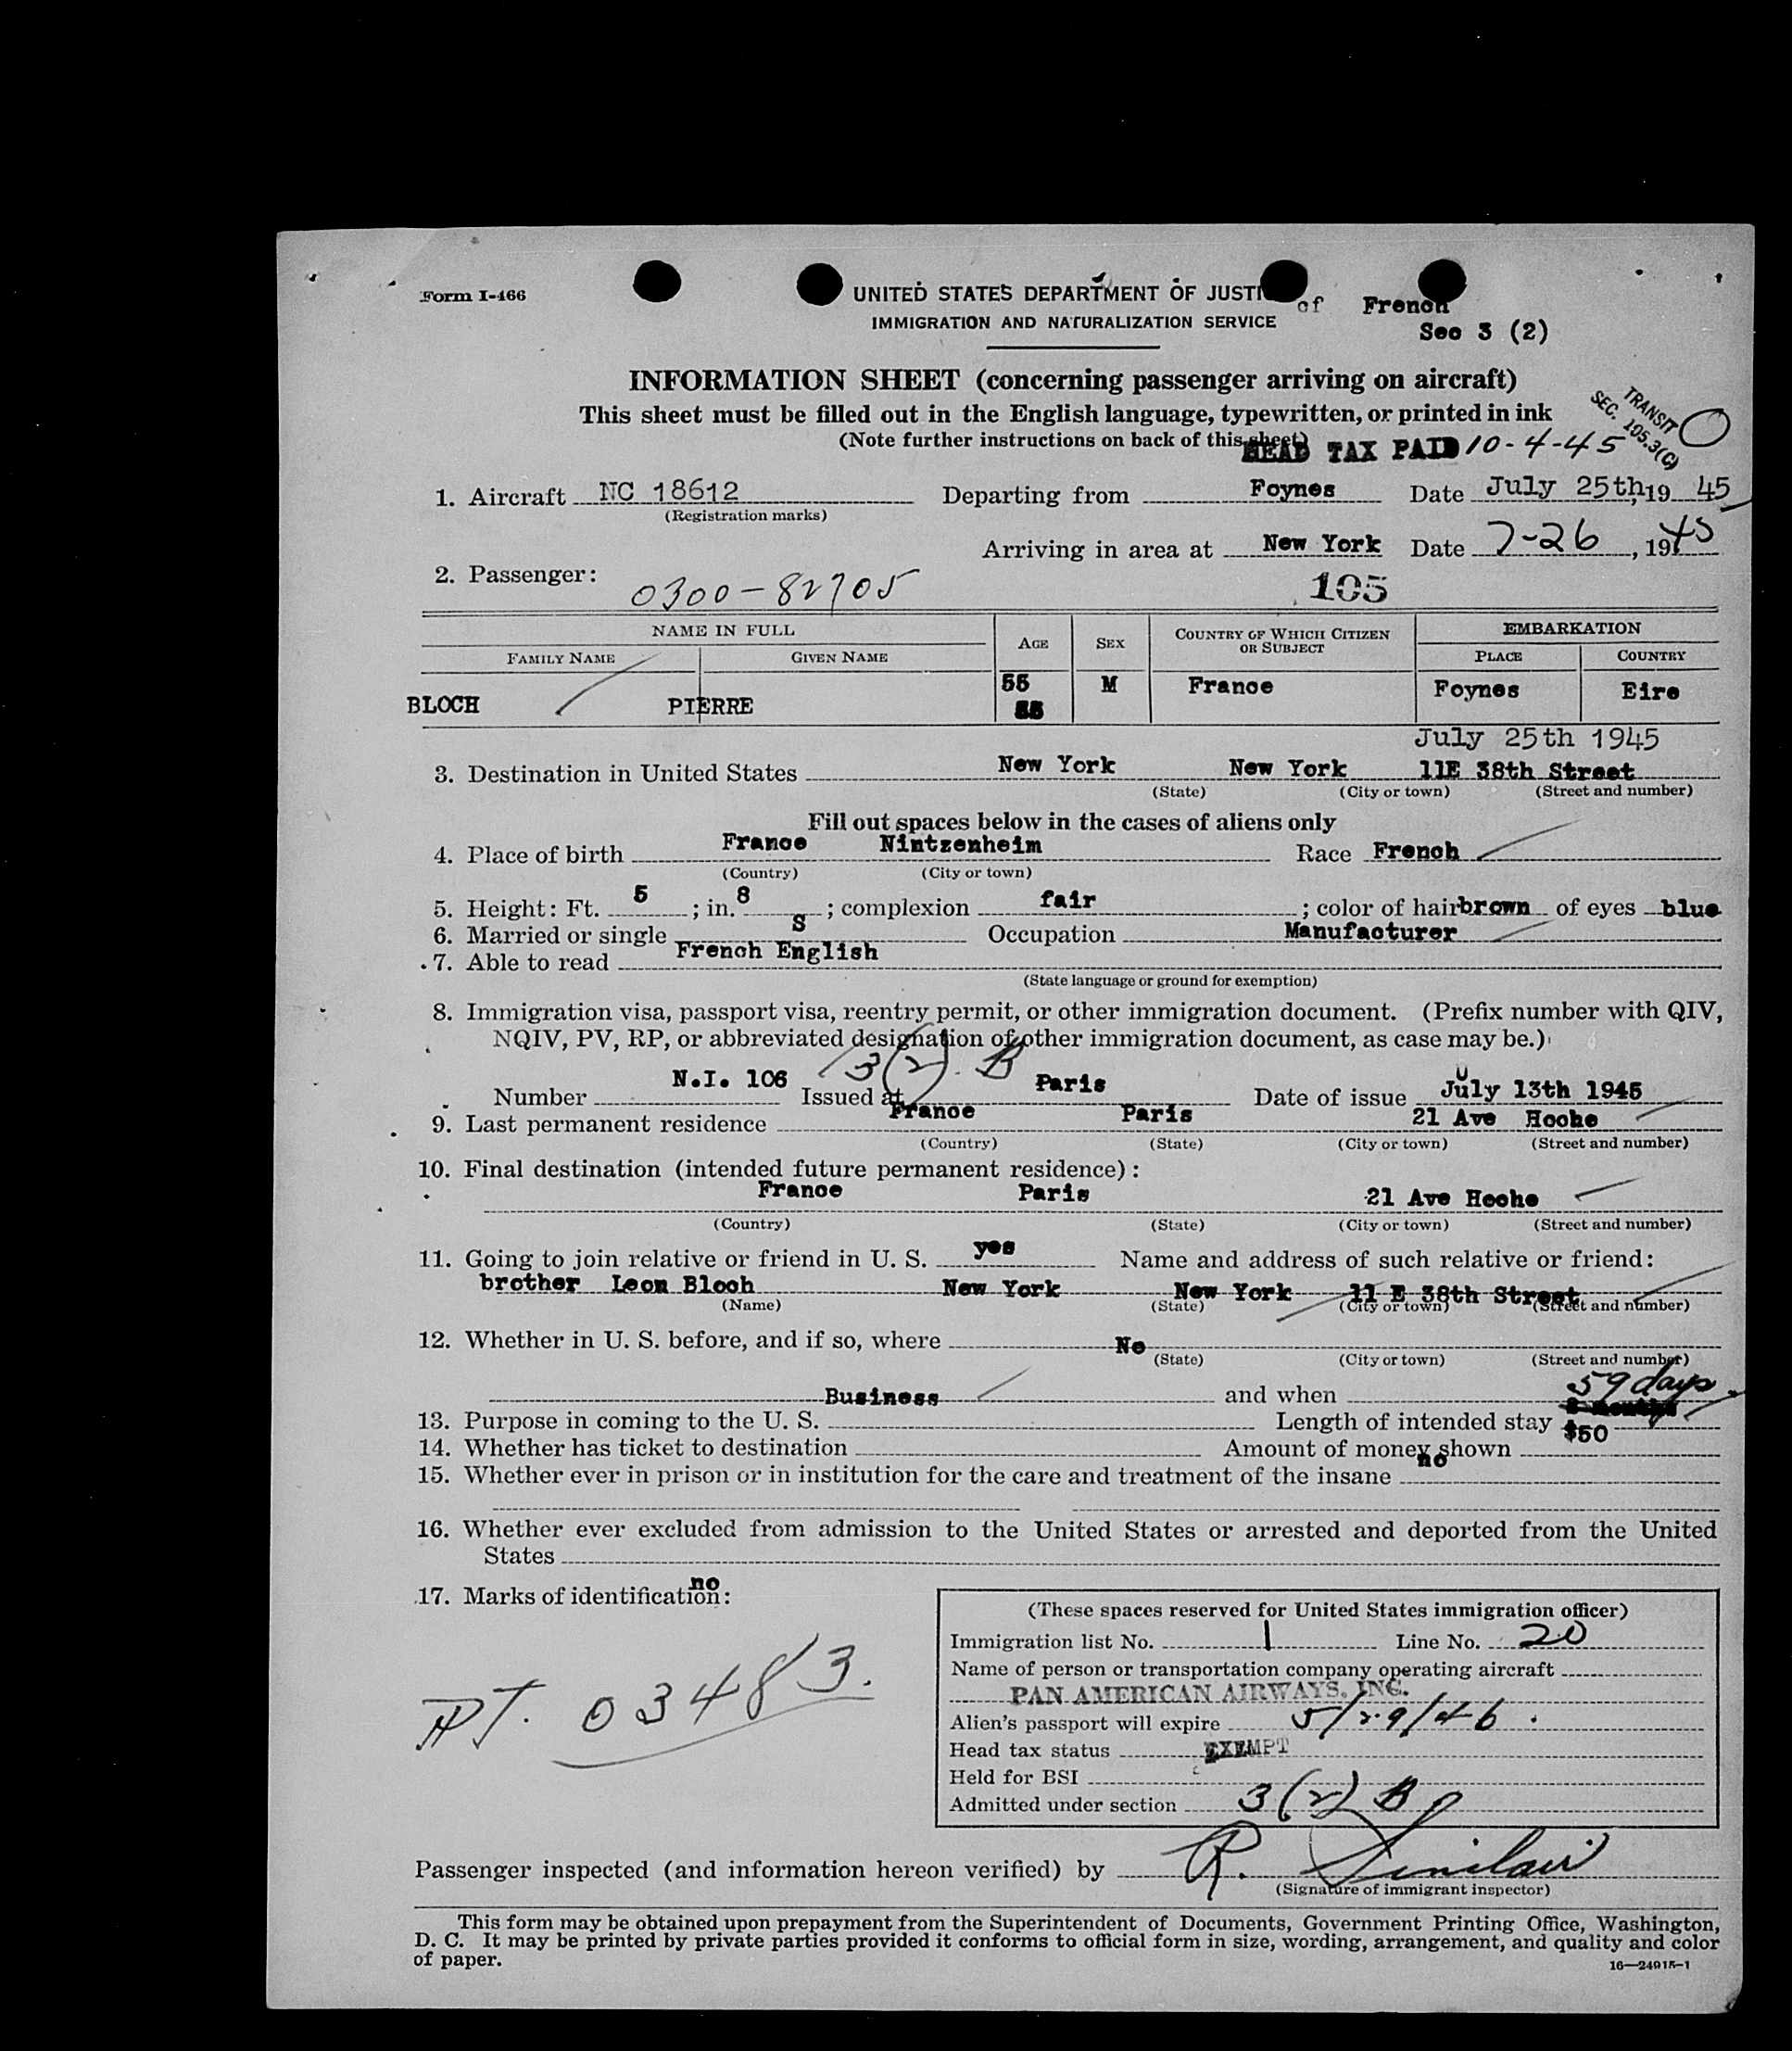 Form I-466
UNITED STATES DEPARTMENT OF JUSTI
of French
IMMIGRATION AND NATURALIZATION SERVICE
Sec 3 (2)
INFORMATION SHEET (concerning passenger arriving on aircraft)
This sheet must be filled out in the English language, typewritten, or printed in ink
TRANSIT
SEC. 105.3(C)
(Note further instructions on back of this sheet)
HEAD TAX PAID 10-4-45
1. Aircraft NC 18612 Departing from Foynes Date July 25th, 19 45
(Registration marks)
Arriving in area at New York Date 7-26, 1945
2. Passenger: 0300-82705 105
NAME IN FULL AGE SEX COUNTRY OF WHICH CITIZEN OR SUBJECT EMBARKATION
FAMILY NAME GIVEN NAME PLACE COUNTRY
BLOCH PIERRE 55 M France Foynes Eire
July 25th 1945
3. Destination in United States New York New York 11E 38th Street
(State) (City or town) (Street and number)
Fill out spaces below in the cases of aliens only
4. Place of birth France Nintzenheim Race French
(Country) (City or town)
5. Height: Ft. 5 ; in. 8 ; complexion fair ; color of hair brown of eyes blue
6. Married or single S Occupation Manufacturer
7. Able to read French English
(State language or ground for exemption)
8. Immigration visa, passport visa, reentry permit, or other immigration document. (Prefix number with QIV,
NQIV, PV, RP, or abbreviated designation of other immigration document, as case may be.)
3(2). B
Number N.I. 106 Issued at Paris Date of issue July 13th 1945
9. Last permanent residence France Paris 21 Ave Hoche
(Country) (State) (City or town) (Street and number)
10. Final destination (intended future permanent residence):
France Paris 21 Ave Hoche
(Country) (State) (City or town) (Street and number)
11. Going to join relative or friend in U. S. yes Name and address of such relative or friend:
brother Leon Bloch New York New York 11 E 38th Street
(Name) (State) (City or town) (Street and number)
12. Whether in U. S. before, and if so, where No
(State) (City or town) (Street and number)
Business and when 59 days
13. Purpose in coming to the U. S. Length of intended stay
14. Whether has ticket to destination Amount of money shown $50
15. Whether ever in prison or in institution for the care and treatment of the insane no
16. Whether ever excluded from admission to the United States or arrested and deported from the United
States
17. Marks of identification: no
(These spaces reserved for United States immigration officer)
Immigration list No. 1 Line No. 20
Name of person or transportation company operating aircraft
PAN AMERICAN AIRWAYS, INC.
Alien's passport will expire 5/29/46.
Head tax status EXEMPT
Held for BSI
Admitted under section 3(2) B
03483.
Passenger inspected (and information hereon verified) by R. Sinclair
(Signature of immigrant inspector)
This form may be obtained upon prepayment from the Superintendent of Documents, Government Printing Office, Washington,
D. C. It may be printed by private parties provided it conforms to official form in size, wording, arrangement, and quality and color
of paper.
16—24915-1